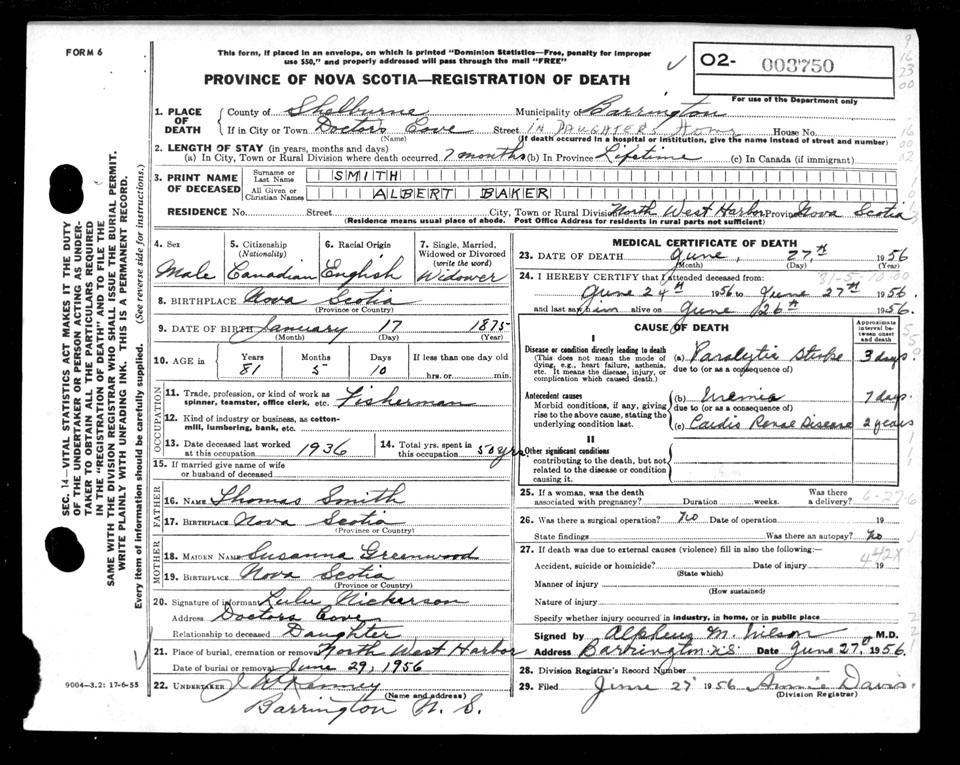 FORM 6
This form, if placed in an envelope, on which is printed "Dominion Statistics—Free, penalty for improper
use $50," and properly addressed will pass through the mail "FREE"
PROVINCE OF NOVA SCOTIA—REGISTRATION OF DEATH
02- 003750
For use of the Department only
1. PLACE OF DEATH
County of Shelburne Municipality of Barrington
If in City or Town Doctors Cove Street IN DAUGHTERS HOME House No.
(Name) (If death occurred in a hospital or institution, give the name instead of street and number)
2. LENGTH OF STAY (in years, months and days)
(a) In City, Town or Rural Division where death occurred 7 months (b) In Province Lifetime (c) In Canada (if immigrant)
3. PRINT NAME OF DECEASED
Surname or Last Name SMITH
All Given or Christian Names ALBERT BAKER
RESIDENCE No. Street City, Town or Rural Division North West Harbor Province Nova Scotia
(Residence means usual place of abode. Post Office Address for residents in rural parts not sufficient)
4. Sex
Male
5. Citizenship
(Nationality)
Canadian
6. Racial Origin
English
7. Single, Married, Widowed or Divorced
(write the word)
Widower
8. BIRTHPLACE Nova Scotia
(Province or Country)
9. DATE OF BIRTH January 17 1875
(Month) (Day) (Year)
10. AGE IN
Years Months Days If less than one day old
81 5 10 hrs. or min.
OCCUPATION
11. Trade, profession, or kind of work as
spinner, teamster, office clerk, etc. Fisherman
12. Kind of industry or business, as cotton-
mill, lumbering, bank, etc.
13. Date deceased last worked
at this occupation 1936
14. Total yrs. spent in
this occupation 50 yrs.
15. If married give name of wife
or husband of deceased
FATHER
16. NAME Thomas Smith
17. BIRTHPLACE Nova Scotia
(Province or Country)
MOTHER
18. MAIDEN NAME Susanna Greenwood
19. BIRTHPLACE Nova Scotia
(Province or Country)
20. Signature of informant Lulu Nickerson
Address Doctors Cove
Relationship to deceased Daughter
21. Place of burial, cremation or removal North West Harbor
Date of burial or removal June 29, 1956
22. UNDERTAKER
(Name and address)
Barrington N. S.
MEDICAL CERTIFICATE OF DEATH
23. DATE OF DEATH June, 27th 1956
(Month) (Day) (Year)
24. I HEREBY CERTIFY that I attended deceased from:
June 24th 1956 to June 27th 1956
and last saw him alive on June 26th 1956.
CAUSE OF DEATH
Approximate interval between onset and death
I
Disease or condition directly leading to death
(This does not mean the mode of
dying, e.g., heart failure, asthenia,
etc. It means the disease, injury, or
complication which caused death.)
(a) Paralytic Stroke 3 days.
due to (or as a consequence of)
Antecedent causes
Morbid conditions, if any, giving
rise to the above cause, stating the
underlying condition last.
(b) Uremia 7 days.
due to (or as a consequence of)
(c) Cardio Renal Disease 2 years
II
Other significant conditions
contributing to the death, but not
related to the disease or condition
causing it.
25. If a woman, was the death
associated with pregnancy? Duration weeks. Was there
a delivery?
6-27-6
26. Was there a surgical operation? No Date of operation 19
State findings Was there an autopsy? No
27. If death was due to external causes (violence) fill in also the following:—
442X
Accident, suicide or homicide? Date of injury 19
(State which)
Manner of injury
(How sustained)
Nature of injury
Specify whether injury occurred in industry, in home, or in public place
Signed by Alpheus M. Wilson M.D.
Address Barrington N.S. Date June 27, 1956.
28. Division Registrar's Record Number
29. Filed June 27 1956 Annie Davis
(Division Registrar)
SEC. 14—VITAL STATISTICS ACT MAKES IT THE DUTY
OF THE UNDERTAKER OR PERSON ACTING AS UNDER-
TAKER TO OBTAIN ALL THE PARTICULARS REQUIRED
IN THE "REGISTRATION OF DEATH" AND TO FILE THE
SAME WITH THE DIVISION REGISTRAR WHO SHALL ISSUE THE BURIAL PERMIT.
WRITE PLAINLY WITH UNFADING INK. THIS IS A PERMANENT RECORD.
Every item of information should be carefully supplied. (See reverse side for instructions.)
9004-3.2: 17-6-55